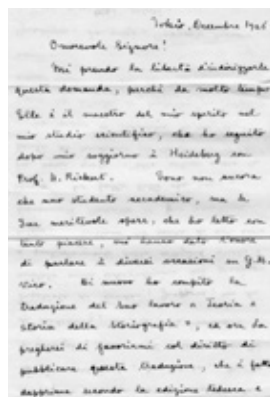 Tokio, Decembre 1926
Onorevole Signore!
Mi prendo la libertà d'indirizzarle
questa domanda, perchè da molto tempo
Elle è il maestro del mio spirito nel
mio studio scientifico, che ho seguito
dopo mio soggiorno à Heidelberg con
Prof. H. Rickert. Sono non ancora
che uno studente accademico, ma le
Sue meritevole opere, che ho letto con
tanto piacere, mi hanno dato l'onore
di parlare à diversi occasioni su G.B.
Vico. Di nuovo ho compito la
traduzione del Suo lavoro « Teoria e
storia della Storiografia », ed ora La
pregherei di favorirmi col diritto di
pubblicare questa traduzione, che è fatta
dapprima secondo la edizione tedesca e